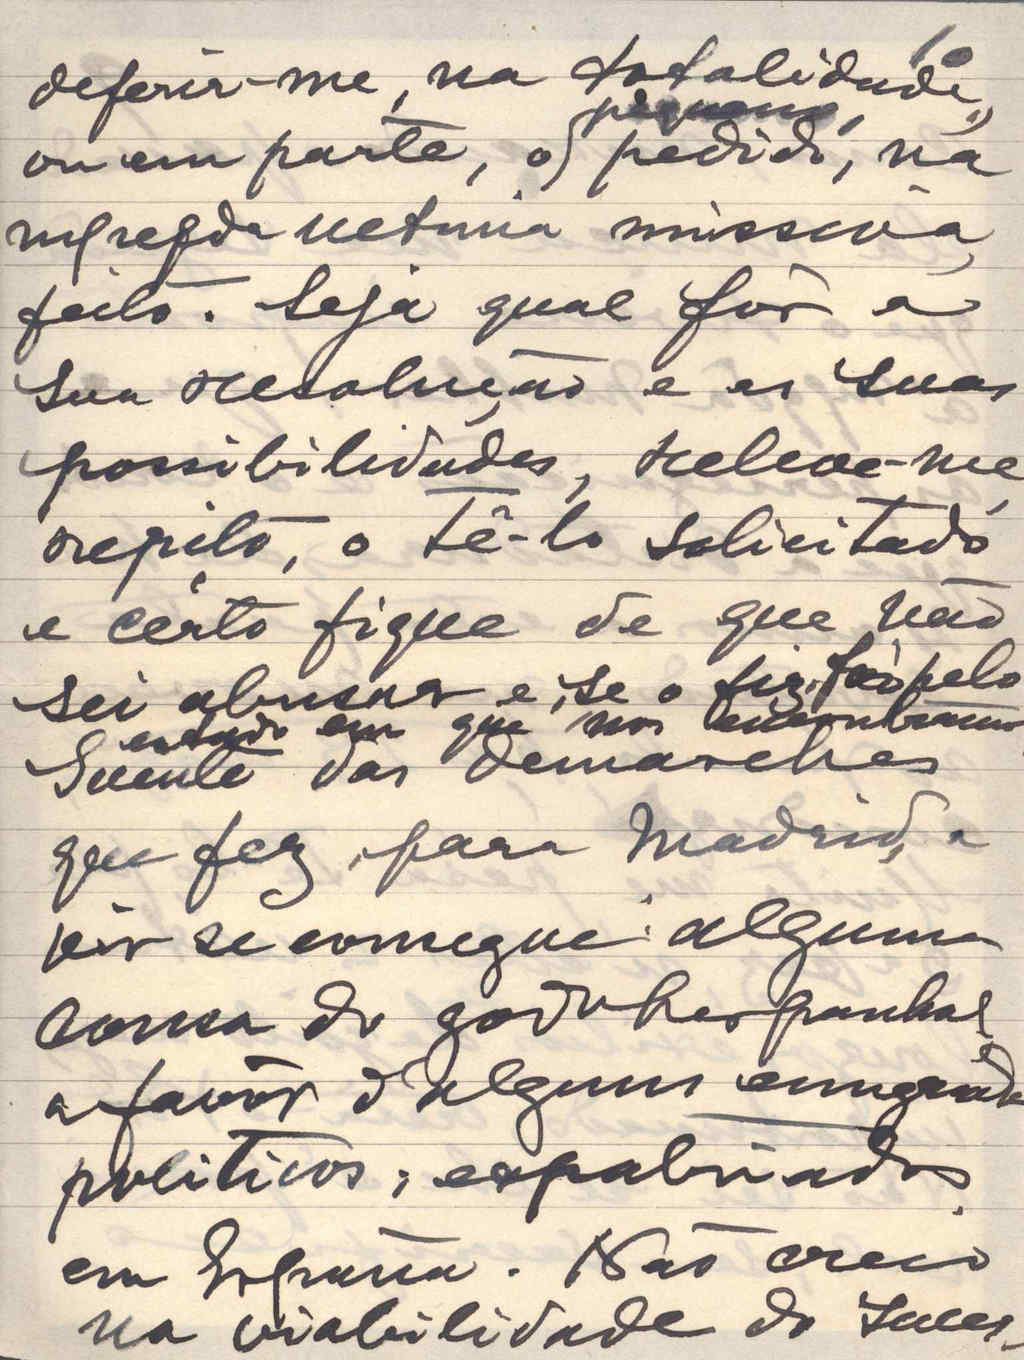 10
deferir-me, na totalidade,
ou em parte, o pequeno, pedido, na
missiva,
feito. Seja qual fôr a
sua resolução e as suas
possibilidades, releve-me,
repito, o tê-lo solicitado
e certo fique de que não
sei abusar e, se o fiz, fá-lo pelo
estado em que nos encontramos.
Gente das demarches
que fez, para Madrid, a
vêr se consegue alguma
cousa do godo hespanhol,
a favôr d'alguns emigrados
politicos, expatriados
em España. Não creio
na viabilidade do suces-